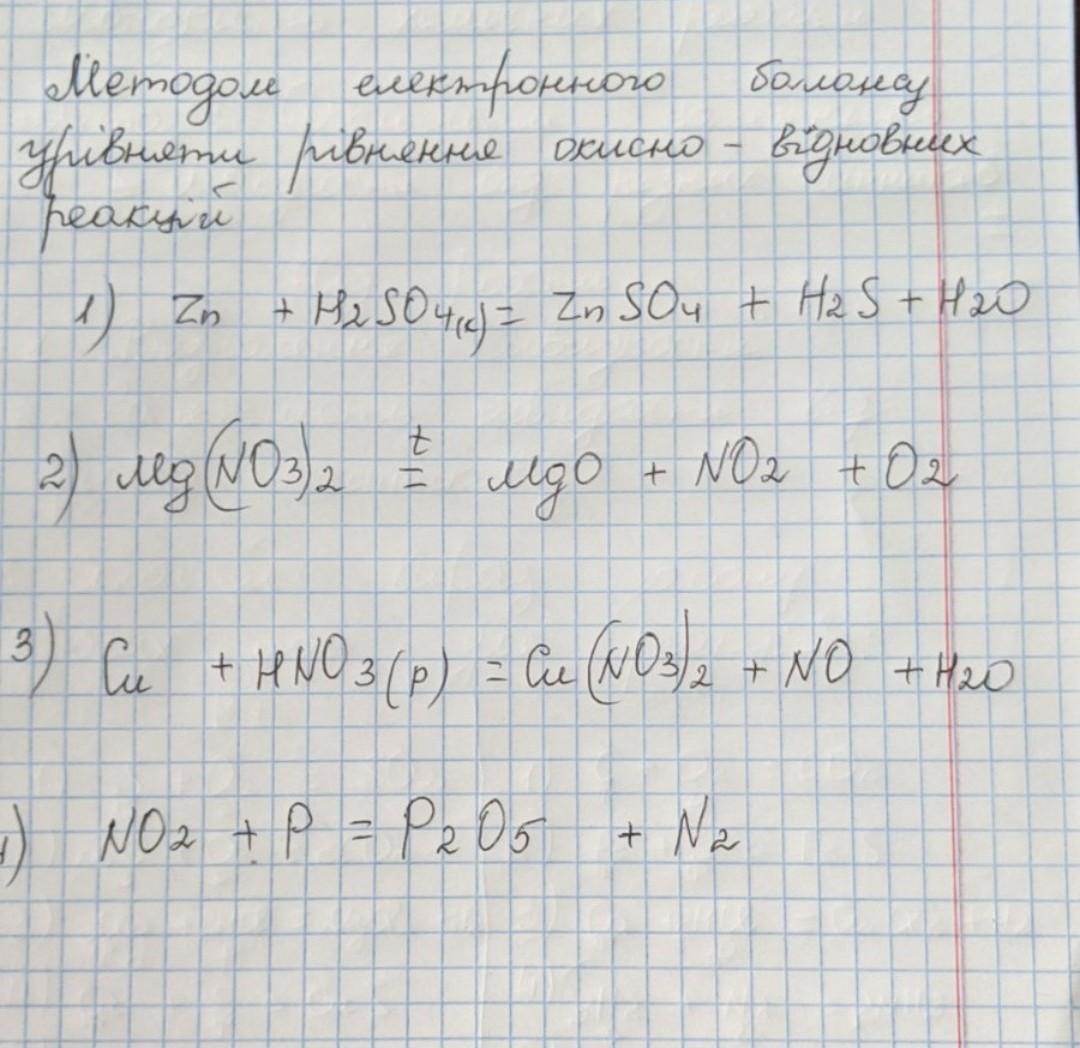 Методом електронного балансу
урівняти рівняння окисно - відновних
реакцій
1) Zn + H2SO4(к) = ZnSO4 + H2S + H2O
2) Mg(NO3)2 t= MgO + NO2 + O2
3) Cu + HNO3(р) = Cu(NO3)2 + NO + H2O
) NO2 + P = P2O5 + N2